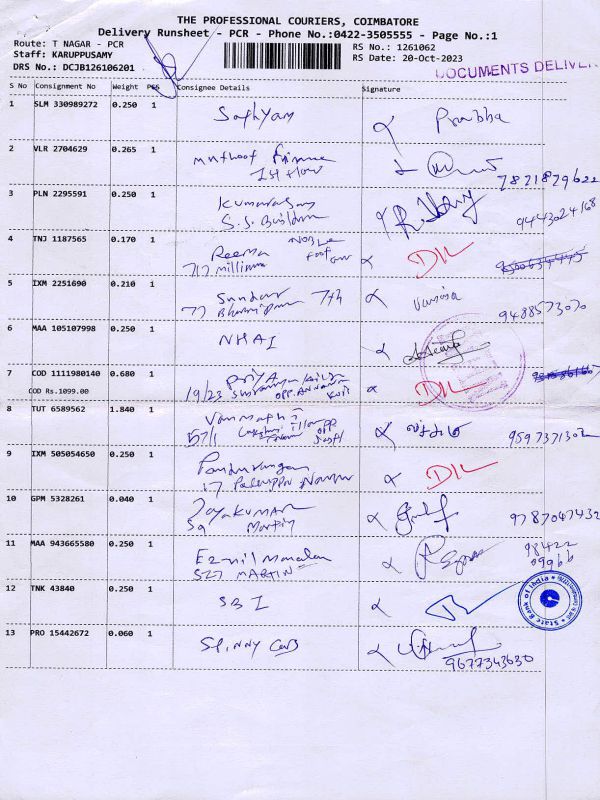 THE PROFESSIONAL COURIERS, COIMBATORE
Delivery Runsheet - PCR - Phone No.:0422-3505555 - Page No.:1
Route: T NAGAR - PCR
Staff: KARUPPUSAMY
DRS No.: DCJB126106201
RS No.: 1261062
RS Date: 20-Oct-2023
DOCUMENTS DELIVE
S No Consignment No Weight PCS Consignee Details Signature
1 SLM 330989272 0.250 1 Sathyam Prabha
2 VLR 2704629 0.265 1 muthoot Finance
1st Floor
7871879622
3 PLN 2295591 0.250 1 Kumarasamy
S.S. Building
9443024168
4 TNJ 1187565 0.170 1 Reema NOBLE
717 millinium Foot DIL
5 IXM 2251690 0.210 1 Sundar 7th
77
9488573070
6 MAA 105107998 0.250 1 NHAI
7 COD 1111980140 0.680 1 Priya
COD Rs.1099.00 19/23 OPP. DIL
8 TUT 6589562 1.840 1 Vanmathi
57/1 Lakshmi OPP
9 IXM 505054650 0.250 1 Pandurangan
17 Palaniappa Nagar DIL
10 GPM 5328261 0.040 1 Jayakumar
59 Martin
9787047432
11 MAA 943665580 0.250 1 Ezhil Maralan
527 MARTIN
98422
09966
12 TNK 43840 0.250 1 SBI
State Bank of India
13 PRO 15442672 0.060 1 Spinny Cars
9677343630